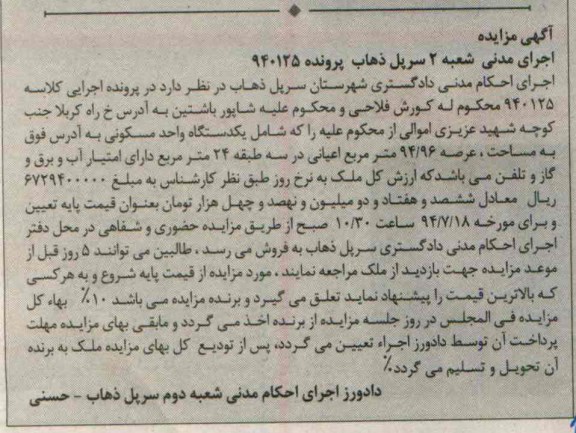 آگهی مزایده
اجرای مدنی شعبه ۲ سرپل ذهاب پرونده ۹۴۰۱۲۵
اجرای احکام مدنی دادگستری شهرستان سرپل ذهاب در نظر دارد در پرونده اجرایی کلاسه
۹۴۰۱۲۵ محکوم له کورش فلاحی و محکوم علیه شاپور باشتین به آدرس خ راه کربلا جنب
کوچه شهید عزیزی اموالی از محکوم علیه را که شامل یکدستگاه واحد مسکونی به آدرس فوق
به مساحت ، عرصه ۹۴/۹۶ متر مربع اعیانی در سه طبقه ۲۴ متر مربع دارای امتیار آب و برق و
گاز و تلفن می باشدکه ارزش کل ملک به نرخ روز طبق نظر کارشناس به مبلغ ۶۷۲۹۴۰۰۰۰۰
ریال معادل ششصد و هفتاد و دو میلیون و نهصد و چهل هزار تومان بعنوان قیمت پایه تعیین
و برای مورخه ۹۴/۷/۱۸ ساعت ۱۰/۳۰ صبح از طریق مزایده حضوری و شفاهی در محل دفتر
اجرای احکام مدنی دادگستری سرپل ذهاب به فروش می رسد ، طالبین می توانند ۵ روز قبل از
موعد مزایده جهت بازدید از ملک مراجعه نمایند ، مورد مزایده از قیمت پایه شروع و به هرکسی
که بالاترین قیمت را پیشنهاد نماید تعلق می گیرد و برنده مزایده می باشد ۱۰٪ بهاء کل
مزایده فی المجلس در روز جلسه مزایده از برنده اخذ می گردد و مابقی بهای مزایده مهلت
پرداخت آن توسط دادورز اجراء تعیین می گردد، پس از تودیع کل بهای مزایده ملک به برنده
آن تحویل و تسلیم می گردد٪
دادورز اجرای احکام مدنی شعبه دوم سرپل ذهاب - حسنی